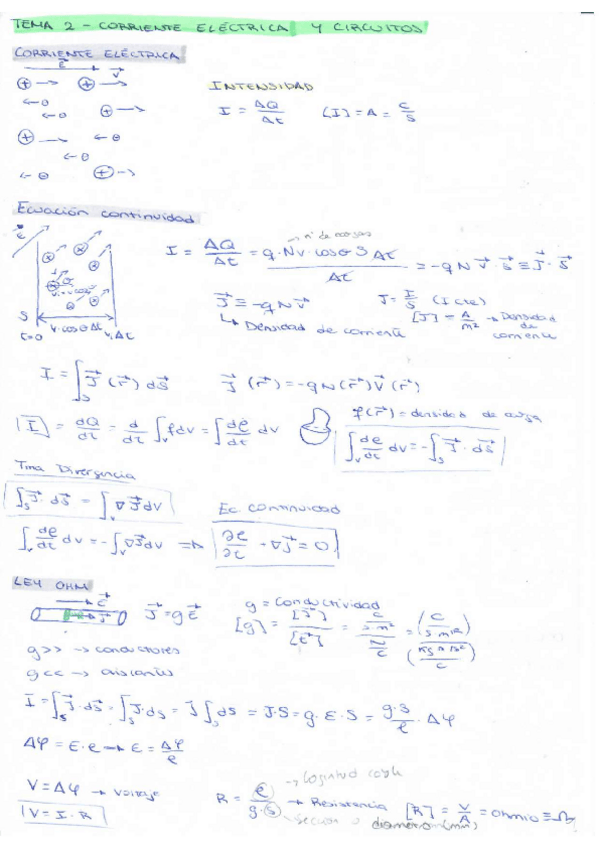 TEMA 2 - CORRIENTE ELÉCTRICA Y CIRCUITOS
CORRIENTE ELÉCTRICA
INTENSIDAD
I = ΔQ/Δt [I] = A = C/S
Ecuación continuidad
nº de cargas
I = ΔQ/Δt = q·Nv·cosθ S Δt / Δt = -q N v⃗·s⃗ ≡ J⃗·S⃗
J⃗ ≡ -q N v⃗ J = I/S (I cte)
↳ Densidad de corriente [J] = A/m² → Densidad de corriente
S v·cosθ Δt
t=0 v·Δt
I = ∫_S J⃗(r⃗) ds⃗ J⃗(r⃗) = -q N(r⃗) v⃗(r⃗)
I = dQ/dt = d/dt ∫_v ρdv = ∫ dρ/dt dv ρ(r⃗) = densidad de carga
∫_v dρ/dt dv = -∫_S J⃗·ds⃗
Tma Divergencia
∫_S J⃗·ds⃗ = ∫_v ∇J⃗dv Ec continuidad
∫_v dρ/dt dv = -∫_v ∇J⃗dv ⇒ ∂ρ/∂t - ∇J⃗ = 0
LEY OHM
J⃗ = g E⃗ g = conductividad
[g] = [J⃗]/[E⃗]
g>> → conductores
g<< → aislantes
I = ∫_S J⃗·ds⃗ = ∫_S J·ds = J ∫_S ds = J·S = g·E·S = g·S/ℓ · Δφ
Δφ = E·ℓ → E = Δφ/ℓ
V = Δφ → Voltaje
R = ℓ/(g·S) → Resistencia [R] = V/A = ohmio ≡ Ω
V = I·R